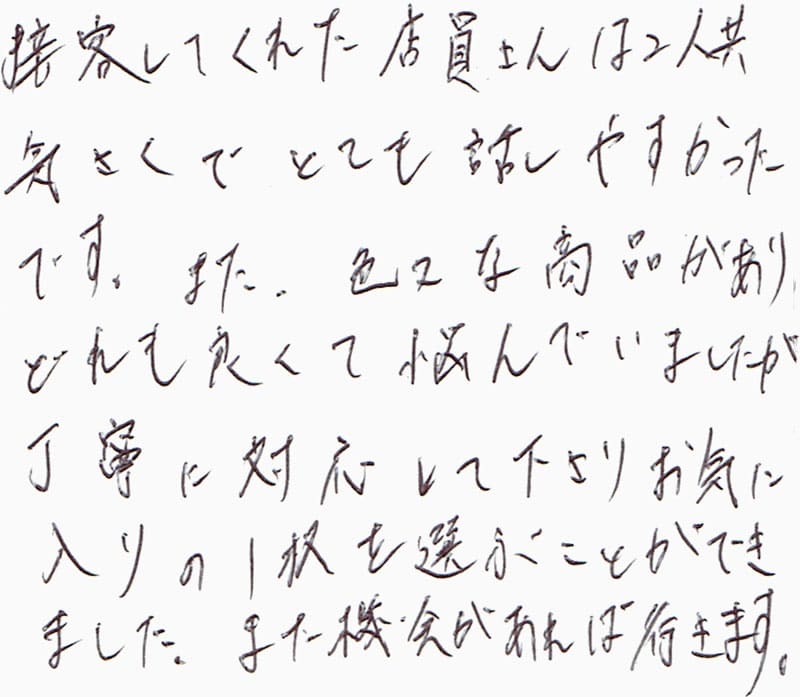 接客してくれた店員さんは2人共
気さくでとても話しやすかった
です。また、色々な商品があり、
どれも良くて悩んでいましたが
丁寧に対応して下さりお気に
入りの1枚を選ぶことができ
ました。また機会があれば行きます。